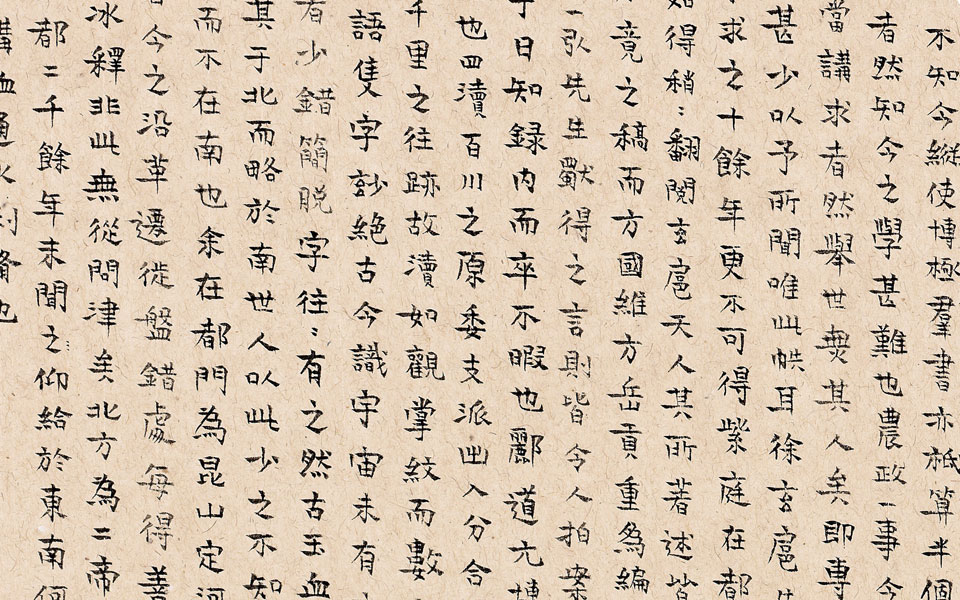 不知今縱使博極羣書亦祗算半個
者然知今之學甚難也農政一事今
當講求者然舉世無其人矣即專
甚少以予所聞唯此帙耳徐玄扈
求之十餘年更不可得紫庭在都
如得稍〻翻閱玄扈天人其所著述皆
竟之稿而方國維方岳貢重為編
一引先生獻得之言則皆今人拍案
于日知錄內而卒不暇也酈道元博
也四瀆百川之原委支派出入分合
千里之往跡故瀆如觀掌紋而數
語隻字妙絕古今識宇宙未有
者少錯簡脫字往〻有之然古玉血
其于北而略於南世人以此少之不知
而不在南也余在都門為昆山定河
今之沿革遷徙盤錯處每得善
冰釋非此無從問津矣北方為二帝
都二千餘年未聞之仰給於東南何
溝血通水利脩也